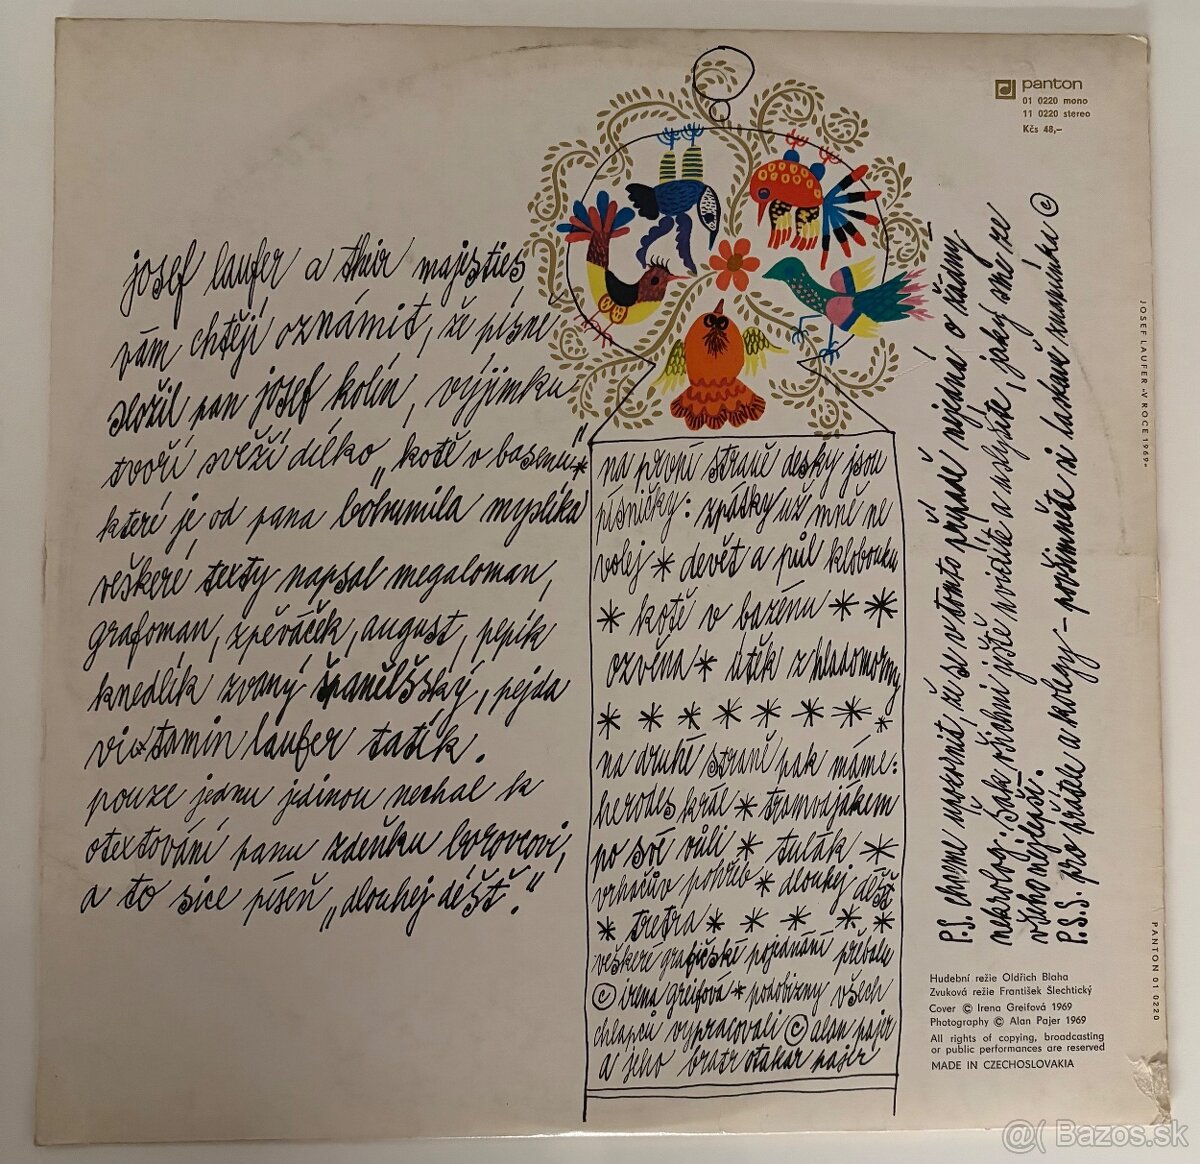 panton
01 0220 mono
11 0220 stereo
Kčs 48,–
josef laufer a their majesties
vám chtějí oznámit, že písně
složil pan josef kolín, výjimku
tvoří svěží dílko „kotě v basenu"
které je od pana bohumila myslíka
veškeré texty napsal megaloman,
grafoman, zpěváček, august, pepík
knedlík zvaný španělššký, pejda
vi tamin laufer tatík.
pouze jednu jedinou nechal k
otextování panu zdeňku borovcovi,
a to sice píseň „dlouhej déšť."
na první straně desky jsou
písničky: zpátky už mně ne
volej * devět a půl klobouku
* kotě v bazénu * *
ozvěna * útěk z hladomorny
* * * * * * * *
na druhé straně pak máme:
herodes král * tramvajákem
po své vůli * tulák *
vrhačův pohřeb * dlouhej déšť
* tretra * * * * *
veškeré grafické pojednání přebalu
© irena greifová * podobizny všech
chlapců vypracovali © alan pajer
a jeho bratr otakar pajer
P.S. chceme upozornit, že se v tomto případě nejedná o žádný
nekrolog: však všichni jistě vidíte a uslyšíte, jaký sme ze
všeho nejlepší.
P.S.S. pro přátele a kolegy - povšimněte si laskavě znaménka ©
Hudební režie Oldřich Blaha
Zvuková režie František Šlechtický
Cover © Irena Greifová 1969
Photography © Alan Pajer 1969
All rights of copying, broadcasting
or public performances are reserved
MADE IN CZECHOSLOVAKIA
JOSEF LAUFER »V ROCE 1969«
PANTON 01 0220
@( Bazos.sk